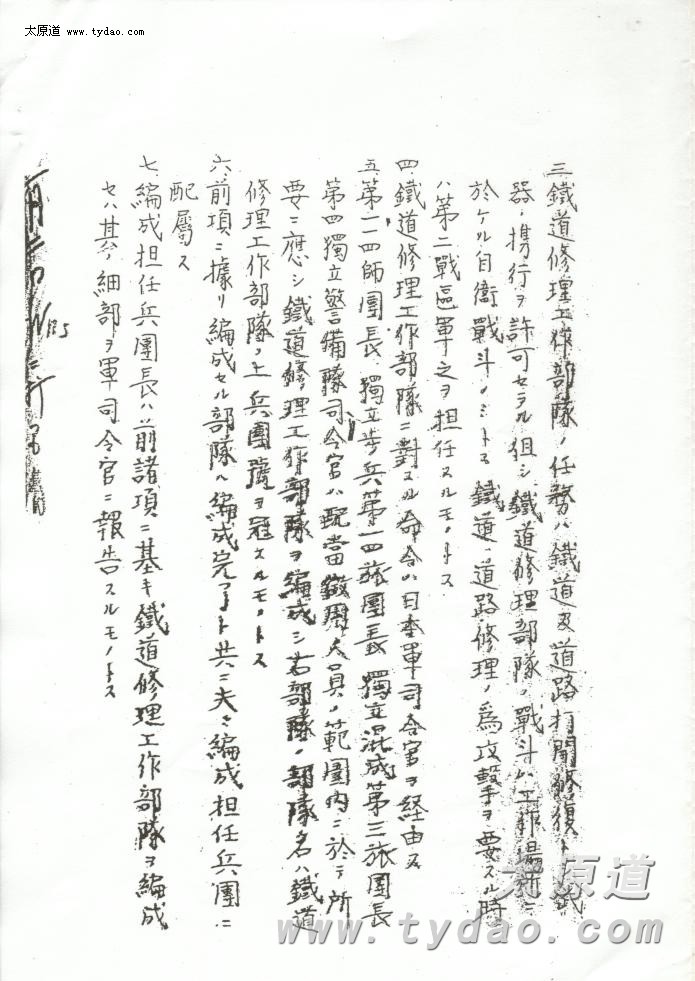 太原道 www.tydao.com
三、鐵道修理工作部隊ノ任務ハ鐵道及道路打開修復トシ武
器ノ携行ヲ許可セラル狙シ鐵道修理部隊ノ戰斗ハ工作場所ニ
於ケル自衛戰斗ノミトス 鐵道、道路修理ノ爲攻擊ヲ要スル時
ハ第二戰區軍之ヲ担任スルモノトス
四、鐵道修理工作部隊ニ對スル命令ハ日本軍司令官ヲ経由ス
五、第一一四師團長、獨立步兵第一四旅團長 獨立混成第三旅團長
第四獨立警備隊司令官ハ配當 人員ノ範圍內ニ於テ所
要ニ應シ鐵道修理工作部隊ヲ編成シ右部隊ノ部隊名ハ鐵道
修理工作部隊ノ上兵團號ヲ冠スルモノトス
六、前項ニ據リ編成セル部隊ハ編成完了ト共ニ夫々編成担任兵團ニ
配屬ス
七、編成担任兵團長ハ前諸項ニ基キ鐵道修理工作部隊ヲ編成
セハ其ノ細部ヲ軍司令官ニ報告スルモノトス
太原道
www.tydao.com